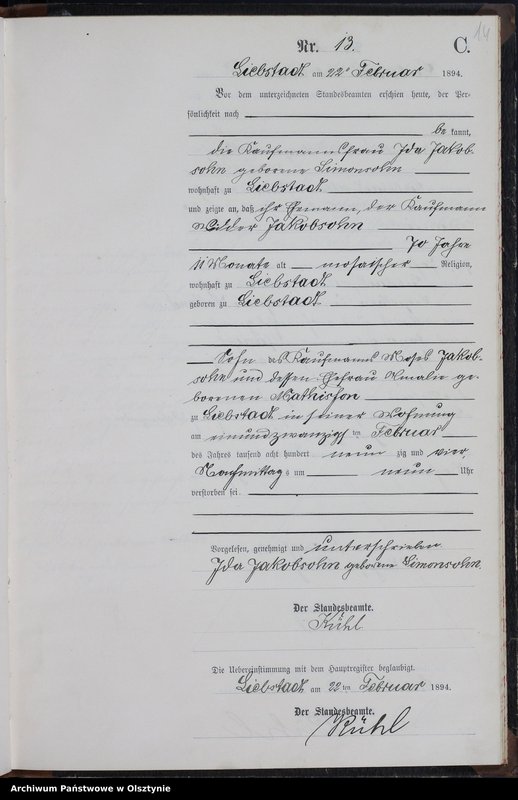 14
Nr. 13. C.
Liebstadt am 22ᵗ Februar 1894.
Vor dem unterzeichneten Standesbeamten erschien heute, der Per-
sönlichkeit nach
be kannt,
die Kaufmannsfrau Ida Jakob-
sohn geborene Simonsohn
wohnhaft zu Liebstadt
und zeigte an, daß ihr Ehemann, der Kaufmann
Jakobsohn
70 Jahre
11 Monate alt mosaischer Religion,
wohnhaft zu Liebstadt
geboren zu Liebstadt
Sohn des Kaufmanns Moses Jakob-
sohn und dessen Ehefrau Amalie ge-
borenen
zu Liebstadt in seiner Wohnung
am einundzwanzigsten Februar
des Jahres tausend acht hundert neun zig und vier
Nachmittags um neun Uhr
verstorben sei.
Vorgelesen, genehmigt und unterschrieben
Ida Jakobsohn geborene Simonsohn.
Der Standesbeamte.
Kühl
Die Uebereinstimmung mit dem Hauptregister beglaubigt.
Liebstadt am 22 ten Februar 1894.
Der Standesbeamte.
Kühl
Archiwum Państwowe w Olsztynie